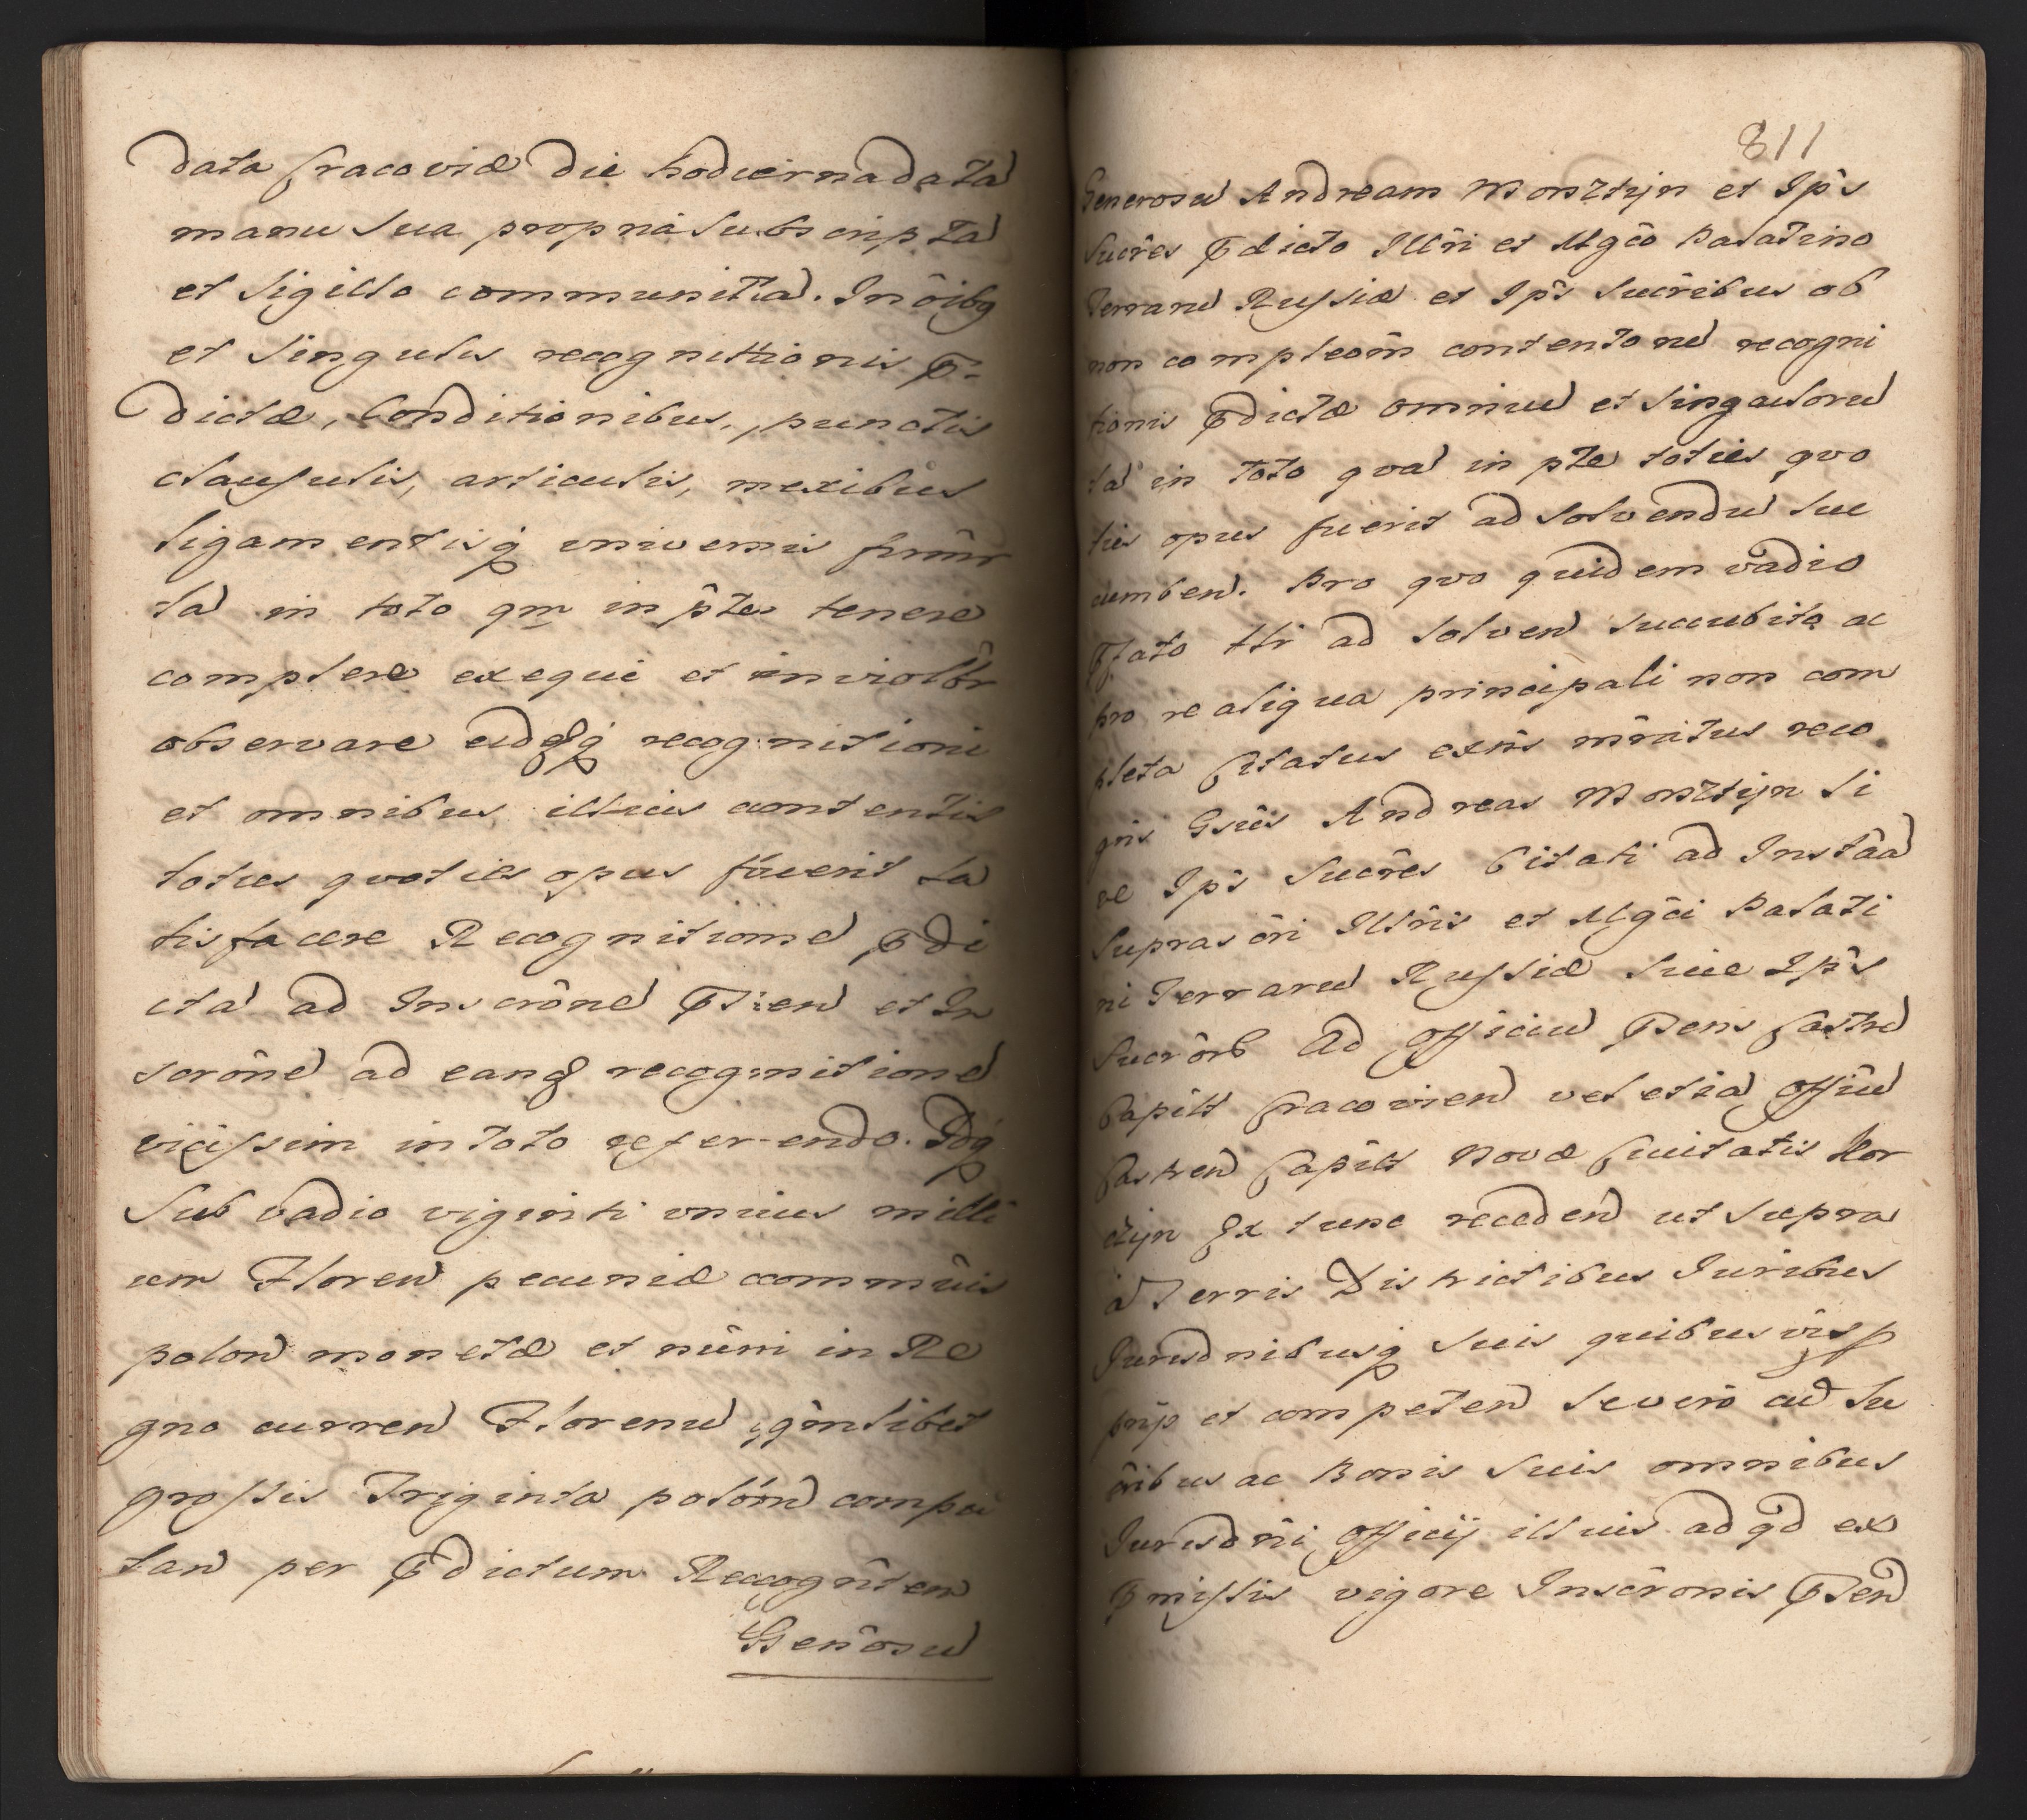 data Cracoviæ die hodierna data
manu sua propria subscripta
et sigillo communita. In oîbq
et singulis recognitionis p-
dictæ, Conditionibus, punctis
clausulis, articulis, nexibus
ligamentisq universis firmr
ta in toto qm in pte tenere
complere exequi et inviolbr
observare eidq recognitioni
et omnibus illius contentis
toties quoties opus fuerit sa
tisfacere Recognitione pdi
cta ad Inscrône psen et In
scrône ad eand recognitione
vicissim in toto referendo. Idq
Sub vadio viginti unius milli
um Floren pecuniæ commûis
polon monetæ et nûmi in Re
gno curren Florenu qmlibet
grossis Triginta polôn compu
tan per pdictum Recognîten
Genôsu
811
Generosu Andream Morsztijn et Ips
Sucrês pdicto Illri et Mgco Palatino
Terraru Russiæ et Ips Sucribus ob
non completm contentone recogni
tionis pdictæ omniu et singuloru
ta in toto qua in pte toties quo
ties opus fuerit ad solvendu suc
cumben. Pro quo quidem vadio
pfato tti ad solven succubito ac
pro re aliqua principali non com
pleta Citatus exns mritus reco
gns Gsus Andreas Morsztijn si
ve Ips Sucrês Citati ad Instaa
suprasôri Illris et Mgci Palati
ni Terraru Russiæ sive Ips
Sucrôrb Ad Officiu psens Castre
Capilt Cracovien vel etia Offiu
Castren Capilt Novæ Civitatis Kor
czijn Ex tunc receden ut supra
a Terris Districtibus Juribus
Jurisdnibusq suis quibusvis p
prijs et competen se vero cu su
cribus ac Bonis suis omnibus
Jurisdni Officij illius ad qd ex
pmissis vigore Inscronis psen